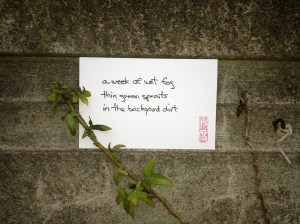 a week of wet fog
thin green sprouts
in the backyard dirt